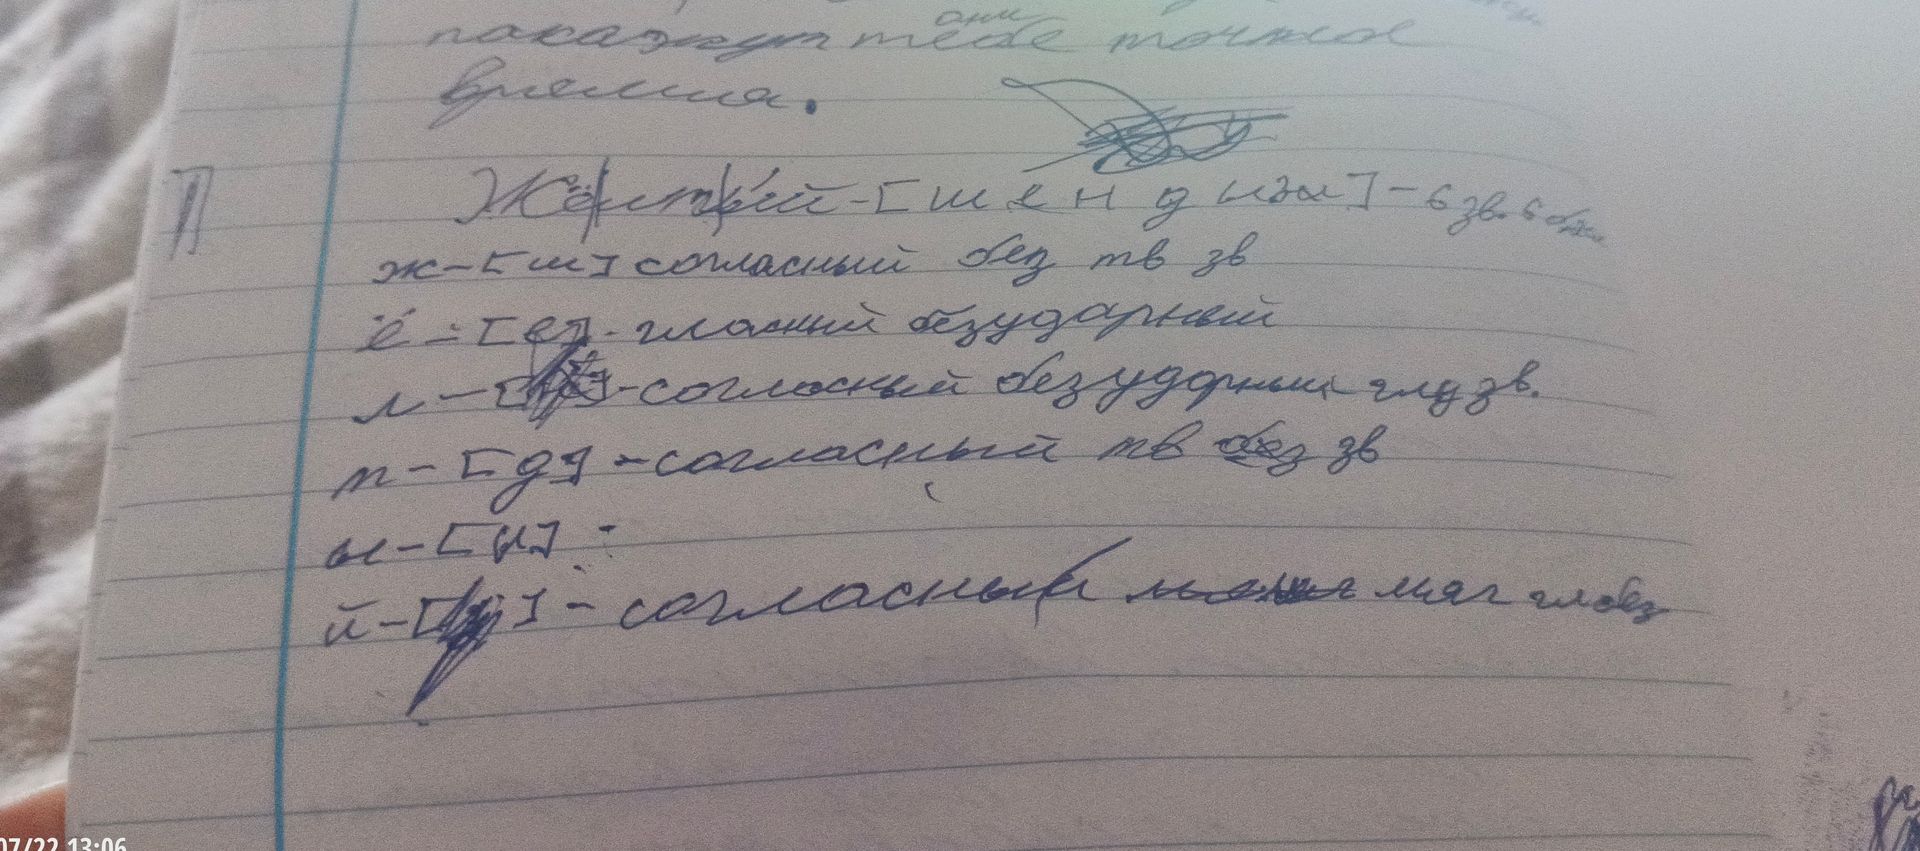 они
покажут тебе точное
время.
Жёлтый - [ш ё н д ] - 6 зв. 6
ж - [ш] согласный без тв зв
ё - [е] - гласный безударный
л - [] - согласный безударный зв.
т - [д] - согласный тв без зв
ы - [и] -
й - [] - согласный мяг
07/22 13:06